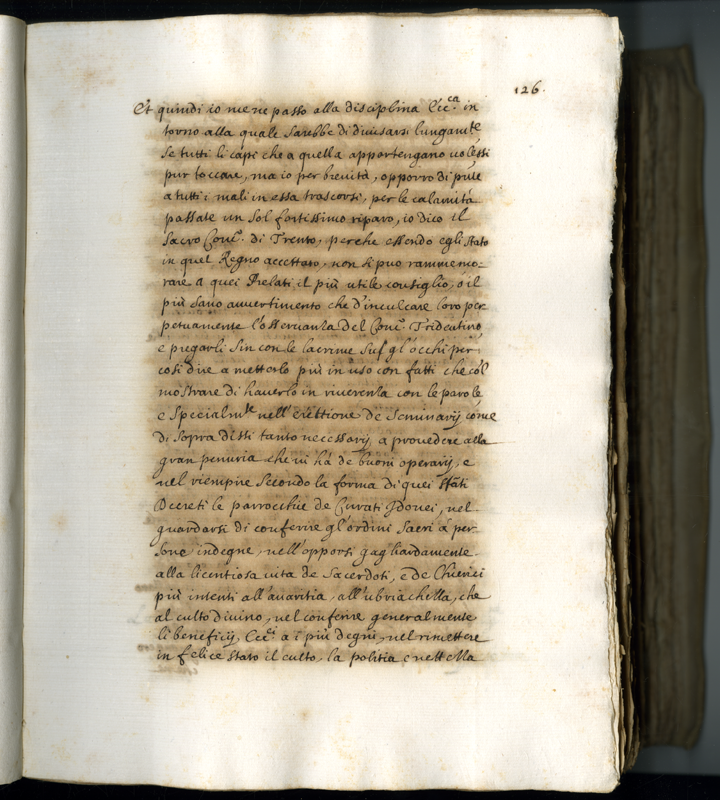 126.
Et quindi io me ne passo alla disciplina Ecc.ca in
torno alla quale sarebbe di divisarsi lungam.te
se tutti li capi che a quella appartengano volessi
pur toccare, ma io per brevità, opporro di pnte
a tutti i mali in essa trascorsi, per le calamità
passate un sol fortissimo riparo, io dico il
sacro Conc.o di Trento, perche essendo egli stato
in quel Regno accettato, non si puo rammemo-
rare a quei Prelati il più utile consiglio, ò il
più sano avvertimento che d'inculcare loro per
petuamente l'osservanza del Conc.o Tridentino,
e pregarli sin con le lacrime sus gl'occhi per
cosi dire a metterlo più in uso con fatti che col
mostrare di haverlo in riverenza con le parole,
e specialm.te nell'erettione de Seminarij come
di sopra dissi tanto necessarij a provedere alla
gran penuria che vi hà de buoni operarij, e
nel riempire secondo la forma di quei stati
Decreti le parrocchie de Curati Idonei, nel
guardarsi di conferire gl'ordini sacri à per
sone indegne, nell'opporsi gagliardamente
alla licentiosa vita de Sacerdoti, e de Chierici
più intenti all'avaritia, all'ubriachezza, che
al culto divino, nel conferire generalmente
li beneficij Ecc.ci a i più degni, nel rimettere
in felice stato il culto, la politia, e nettezza